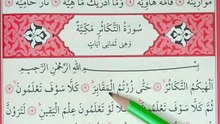 مَوَازِينُهُ فَأُمُّهُ هَاوِيَةٌ وَمَا أَدْرَيكَ مَا هِيَهْ نَارٌ حَامِيَةٌ
سُورَةُ التَّكَاثُرِ مَكِّيَّةٌ
وَهِىَ ثَمَانِى اٰيَاتٍ
بِسْمِ اللّٰهِ الرَّحْمٰنِ الرَّحِيمِ
أَلْهٰيكُمُ التَّكَاثُرُ حَتّٰى زُرْتُمُ الْمَقَابِرَ كَلَّا سَوْفَ تَعْلَمُونَ
ثُمَّ كَلَّا سَوْفَ تَعْلَمُونَ كَلَّا لَوْ تَعْلَمُونَ عِلْمَ الْيَقِينِ